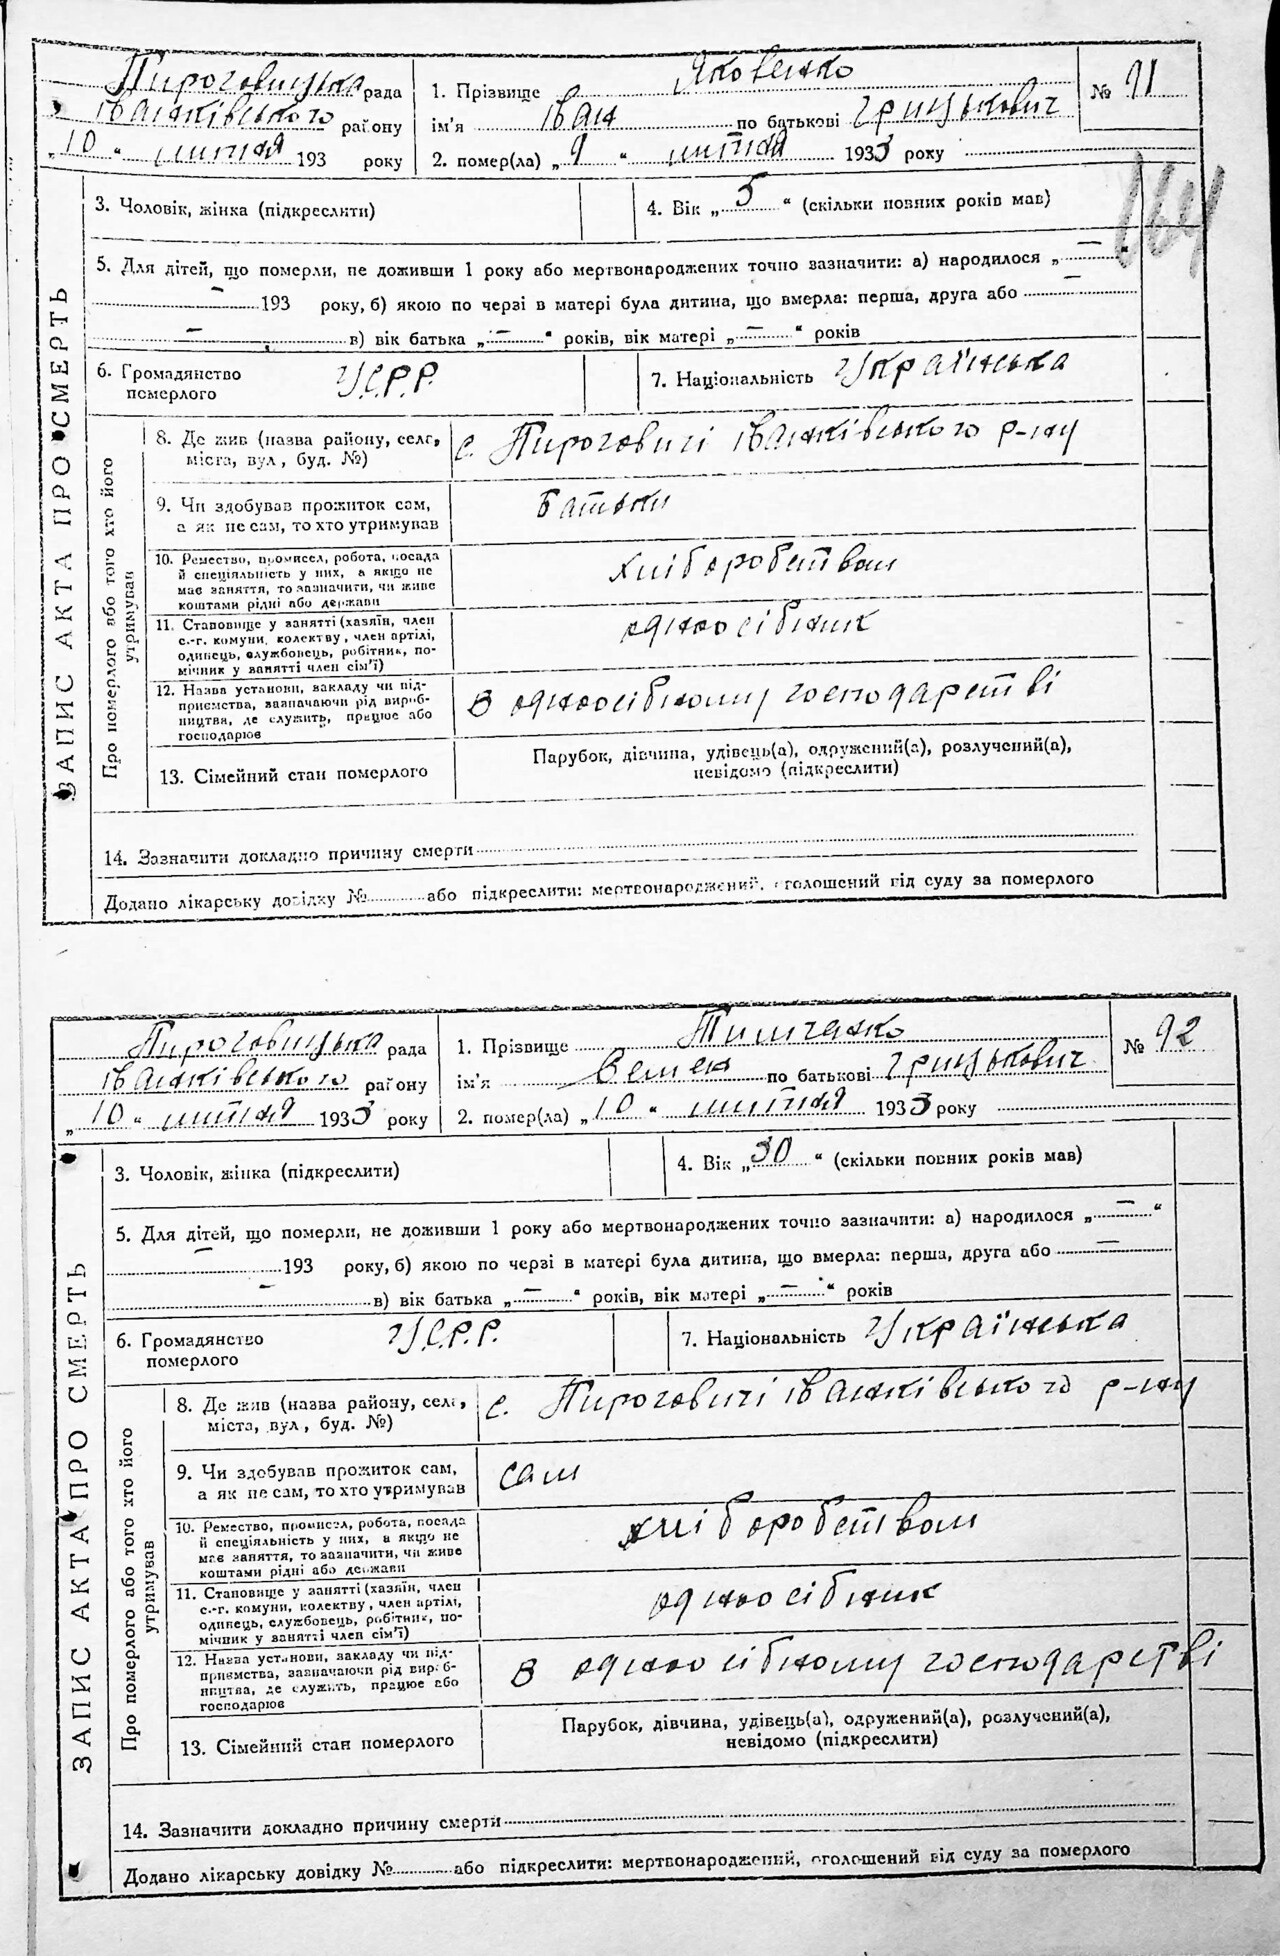 Пироговицька рада
Іванківського району
„10" липня 193 року
1. Прізвище Яковенко
ім'я Іван по батькові Грицькович
2. помер(ла) „9" липня 1933 року
№ 91
164
ЗАПИС АКТА ПРО СМЕРТЬ
3. Чоловік, жінка (підкреслити)
4. Вік „5" (скільки повних років мав)
5. Для дітей, що померли, не доживши 1 року або мертвонароджених точно зазначити: а) народилося „—"
— 193 року, б) якою по черзі в матері була дитина, що вмерла: перша, друга або —
— в) вік батька „—" років, вік матері „—" років
6. Громадянство
померлого
У.С.Р.Р.
7. Національність Українська
Про померлого або того хто його
утримував
8. Де жив (назва району, село,
міста, вул, буд. №)
с. Пироговичі Іванківського р-ну
9. Чи здобував прожиток сам,
а як не сам, то хто утримував
Батьки
10. Ремество, промисел, робота, посада
й спеціяльність у них, а якщо не
має заняття, то зазначити, чи живе
коштами рідні або держави
хліборобством
11. Становище у занятті (хазяїн, член
с.-г. комуни, колективу, член артілі,
одинець, службовець, робітник, по-
мічник у занятті член сім'ї)
односібник
12. Назва установи, закладу чи під-
приємства, зазначаючи рід вироб-
ництва, де служить, працює або
господарює
в односібному господарстві
13. Сімейний стан померлого
Парубок, дівчина, удівець(а), одружений(а), розлучений(а),
невідомо (підкреслити)
14. Зазначити докладно причину смерти
Додано лікарську довідку № або підкреслити: мертвонароджений, оголошений від суду за померлого
Пироговицька рада
Іванківського району
„10" липня 1933 року
1. Прізвище Тимченко
ім'я Семен по батькові Грицькович
2. помер(ла) „10" липня 1933 року
№ 92
ЗАПИС АКТА ПРО СМЕРТЬ
3. Чоловік, жінка (підкреслити)
4. Вік „30" (скільки повних років мав)
5. Для дітей, що померли, не доживши 1 року або мертвонароджених точно зазначити: а) народилося „—"
— 193 року, б) якою по черзі в матері була дитина, що вмерла: перша, друга або —
— в) вік батька „—" років, вік матері „—" років
6. Громадянство
померлого
У.С.Р.Р.
7. Національність Українська
Про померлого або того хто його
утримував
8. Де жив (назва району, село,
міста, вул, буд. №)
с. Пироговичі Іванківського р-ну
9. Чи здобував прожиток сам,
а як не сам, то хто утримував
сам
10. Ремество, промисел, робота, посада
й спеціяльність у них, а якщо не
має заняття, то зазначити, чи живе
коштами рідні або держави
хліборобством
11. Становище у занятті (хазяїн, член
с.-г. комуни, колективу, член артілі,
одинець, службовець, робітник, по-
мічник у занятті член сім'ї)
односібник
12. Назва установи, закладу чи під-
приємства, зазначаючи рід вироб-
ництва, де служить, працює або
господарює
в односібному господарстві
13. Сімейний стан померлого
Парубок, дівчина, удівець(а), одружений(а), розлучений(а),
невідомо (підкреслити)
14. Зазначити докладно причину смерти
Додано лікарську довідку № або підкреслити: мертвонароджений, оголошений від суду за померлого